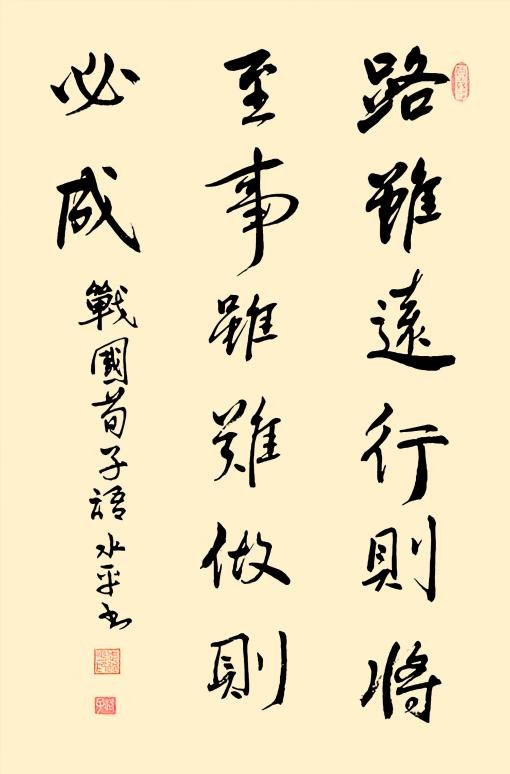 路雖遠行則將
至事雖難做則
必成
戰國荀子語水平書